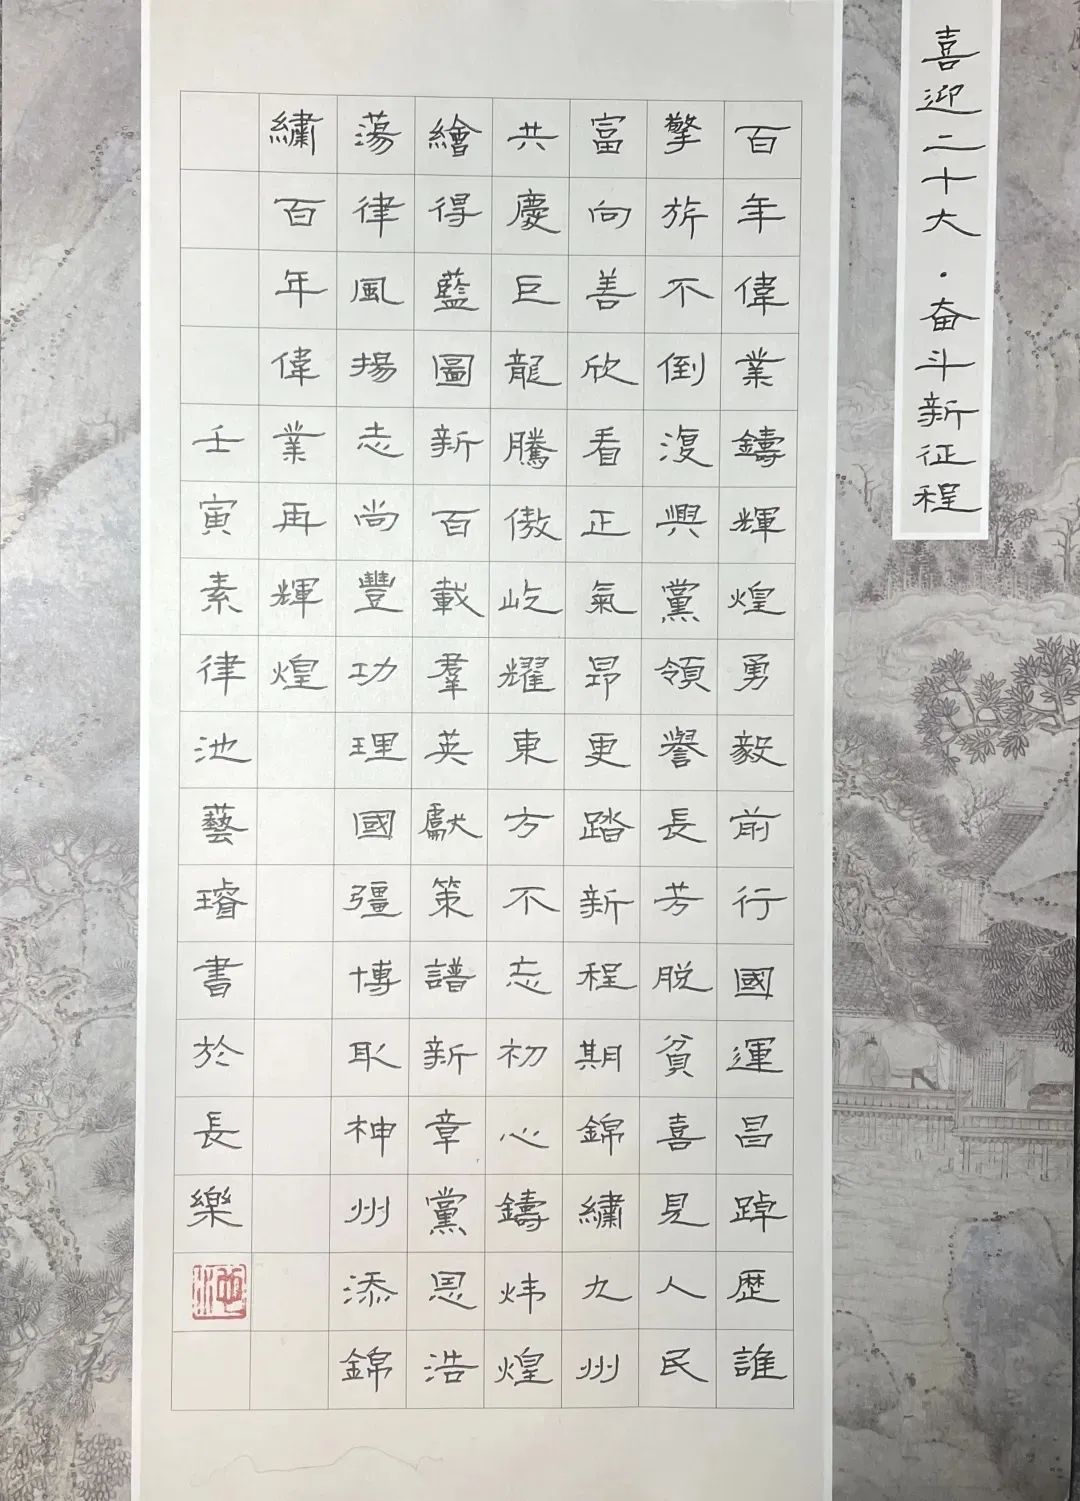 喜迎二十大·奋斗新征程
百年偉業鑄輝煌勇毅前行國運昌踔歷誰
擎旂不倒復興黨領譽長芳脱貧喜見人民
富向善欣看正氣昂更踏新程期錦繡九州
共慶巨龍騰傲屹耀東方不忘初心鑄炜煌
繪得藍圖新百載羣英獻策譜新章黨恩浩
蕩律風揚志尚豐功理國彊博取神州添錦
繡百年偉業再輝煌
壬寅素律池藝璿書於長樂